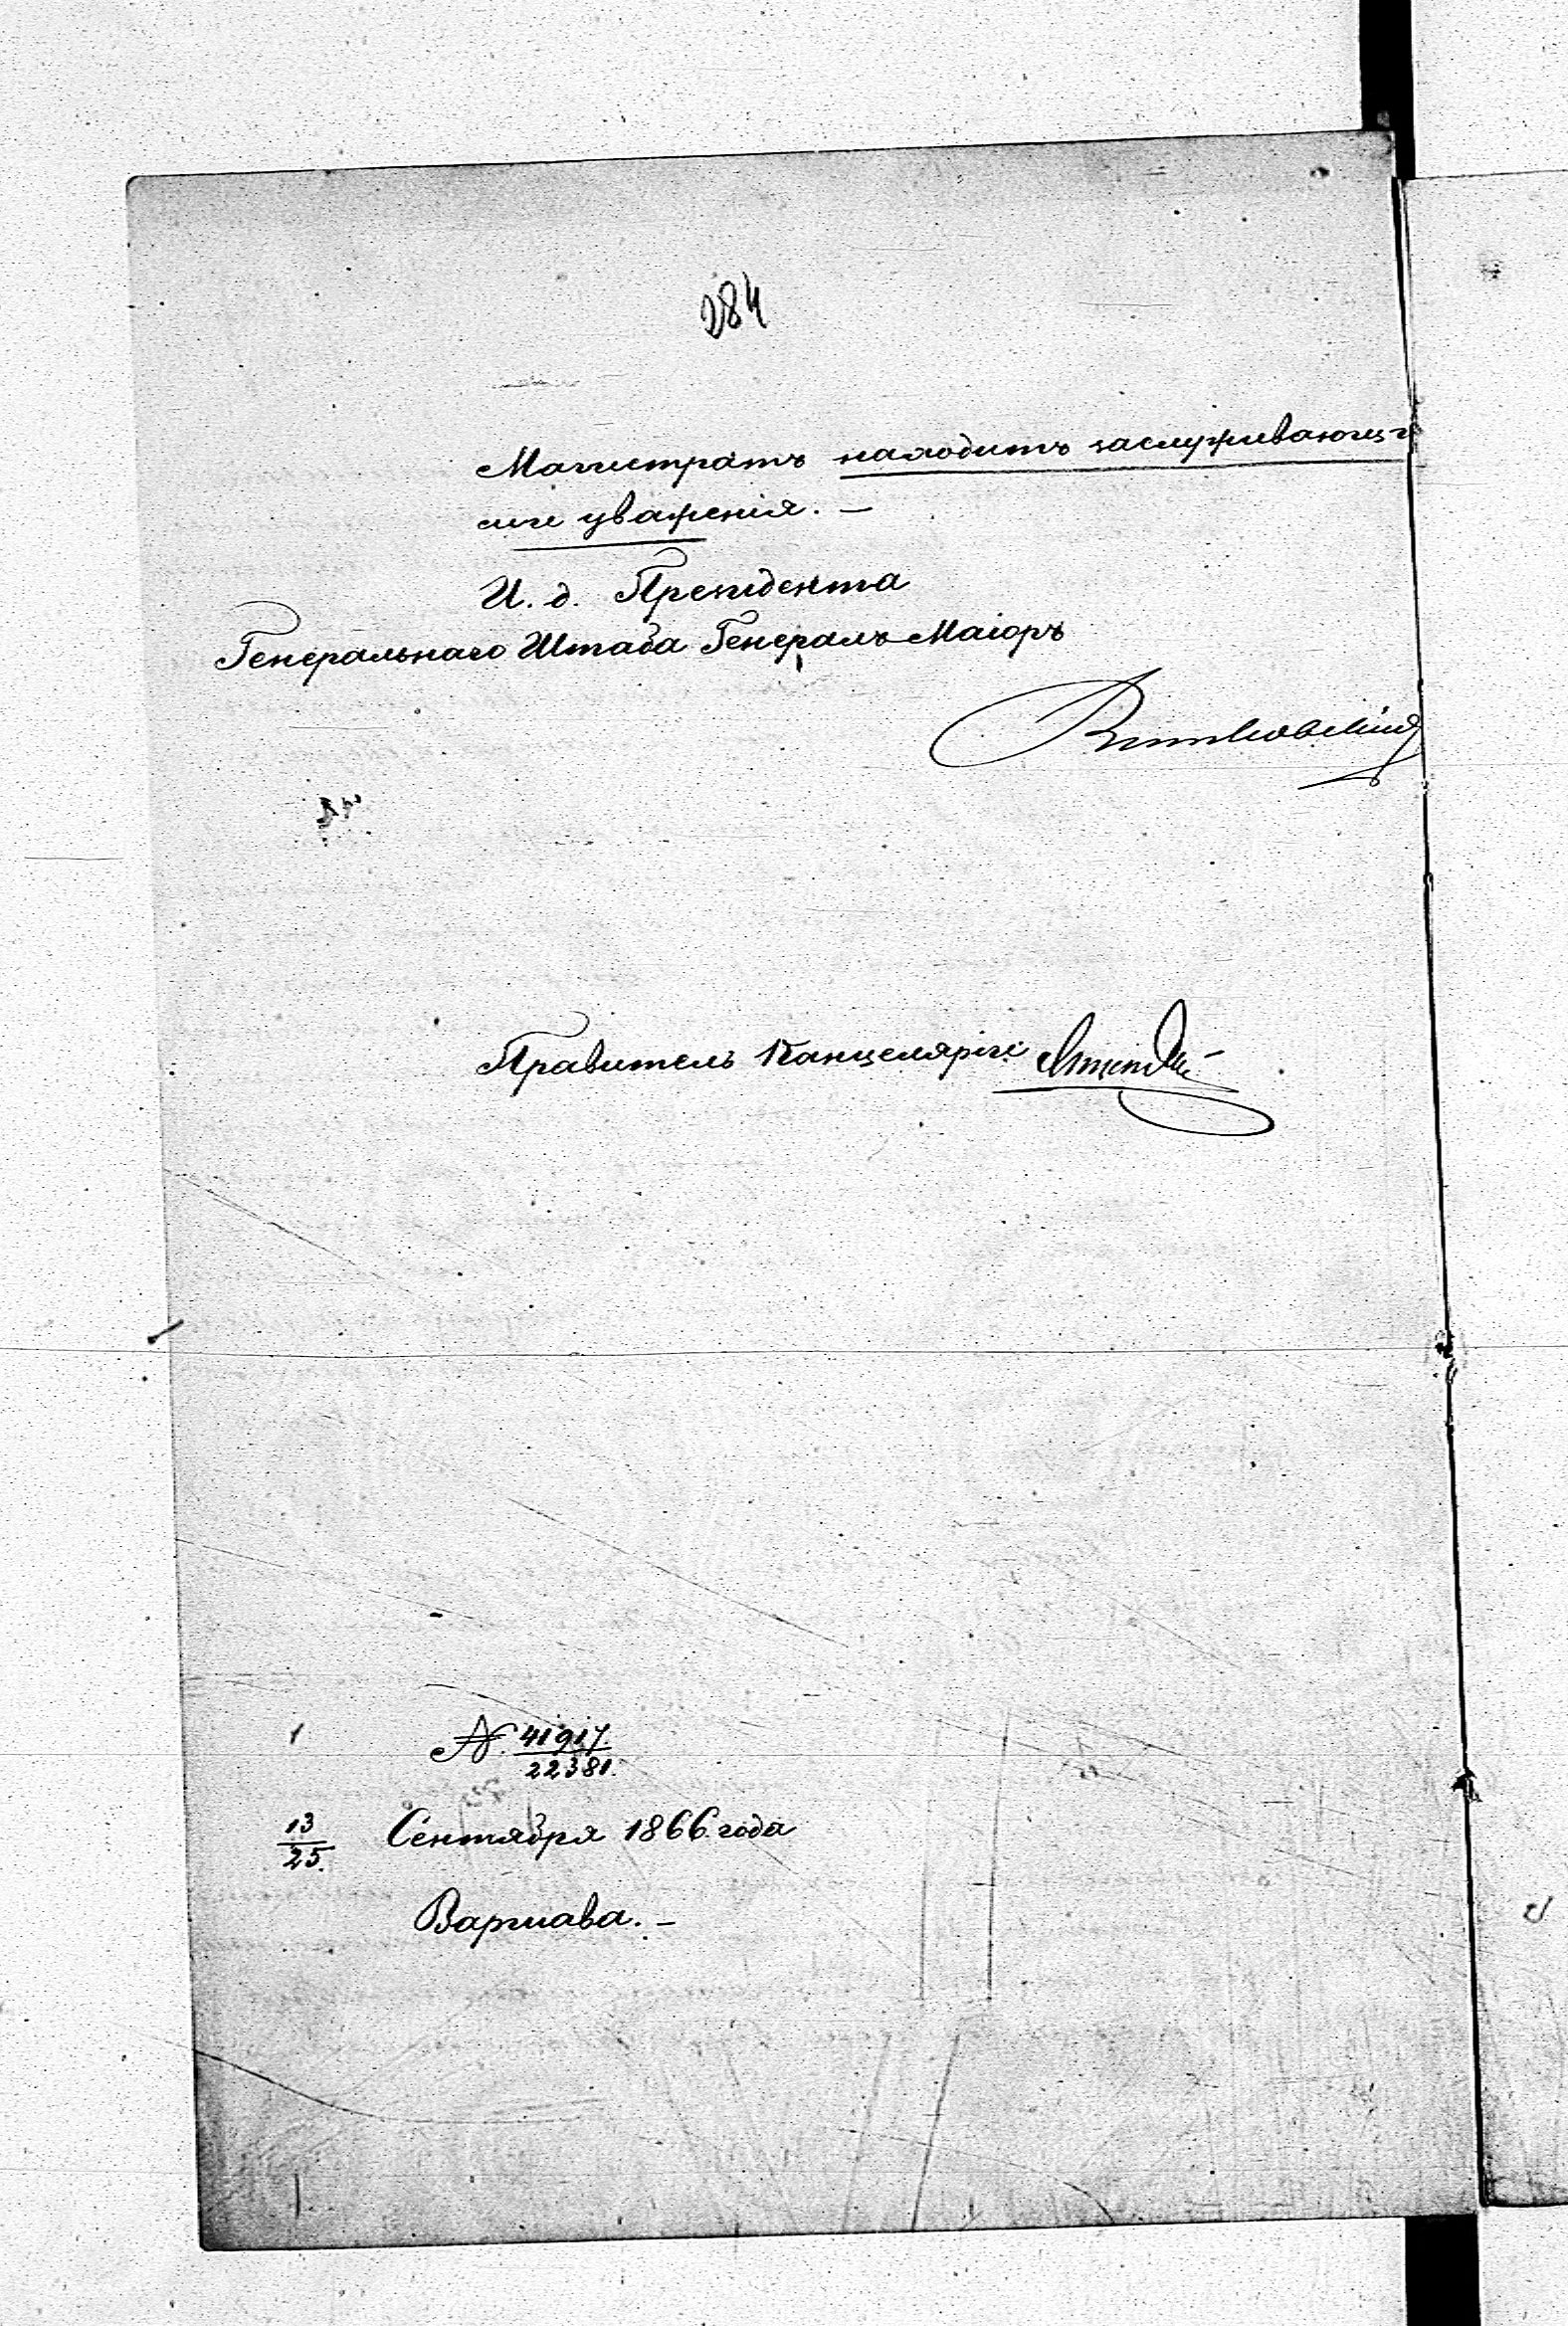 284
Магистратъ находитъ заслуживающи
ми уваженія. —
И. д. Президента
Генеральнаго Штаба Генералъ-Маіоръ
Витковскій
Правитель Канцеляріи
№. 41917.
22381.
13
25. Сентября 1866 года
Варшава. –